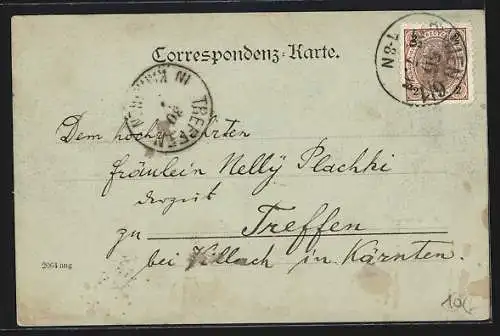 Correspondenz-Karte.
WIEN
TREFFEN IN KÄRNTEN
30
Dem hochgeehrten
Fräulein Nelly Plachki
zu Treffen
bei Villach in Kärnten.
2064 ung